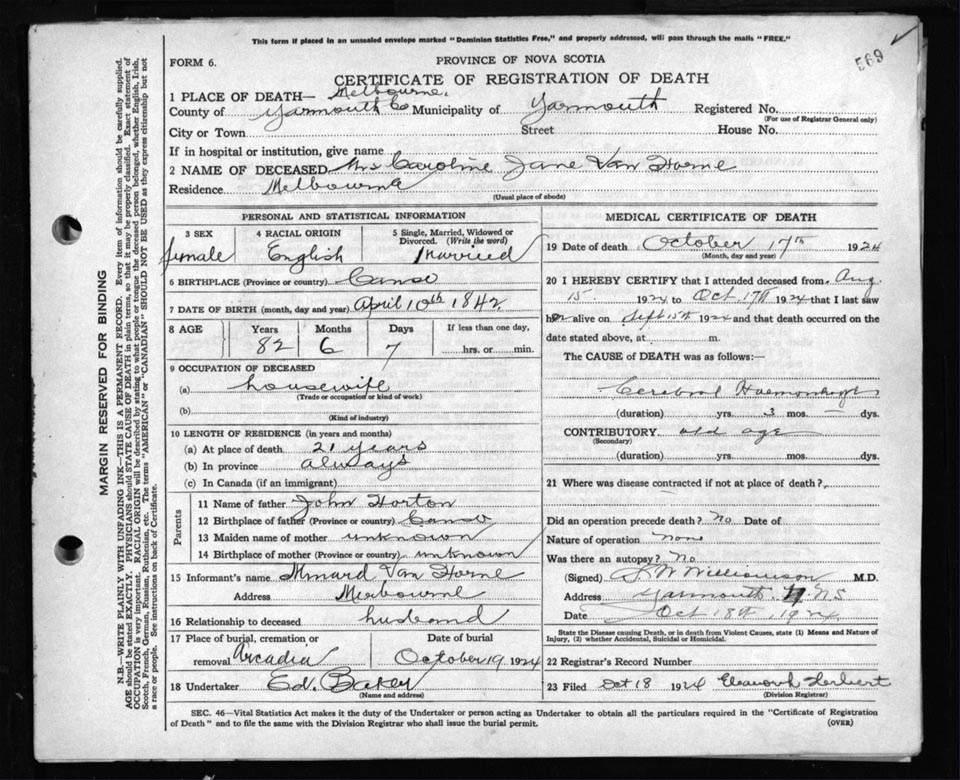 This form if placed in an unsealed envelope marked "Dominion Statistics Free," and properly addressed, will pass through the mails "FREE."
569
FORM 6.
PROVINCE OF NOVA SCOTIA
CERTIFICATE OF REGISTRATION OF DEATH
1 PLACE OF DEATH— Melbourne,
County of Yarmouth Co Municipality of Yarmouth Registered No.
(For use of Registrar General only)
City or Town Street House No.
If in hospital or institution, give name
2 NAME OF DECEASED Mrs Caroline Jane Van Horne
Residence Melbourne
(Usual place of abode)
PERSONAL AND STATISTICAL INFORMATION
3 SEX 4 RACIAL ORIGIN 5 Single, Married, Widowed or Divorced. (Write the word)
female English Married
6 BIRTHPLACE (Province or country) Canso
7 DATE OF BIRTH (month, day and year) April 10th 1842
8 AGE Years Months Days If less than one day,
82 6 7 hrs. or min.
9 OCCUPATION OF DECEASED
(a) housewife
(Trade or occupation or kind of work)
(b)
(Kind of industry)
10 LENGTH OF RESIDENCE (in years and months)
(a) At place of death 21 years
(b) In province always
(c) In Canada (if an immigrant)
Parents
11 Name of father John Horton
12 Birthplace of father (Province or country) Canso
13 Maiden name of mother unknown
14 Birthplace of mother (Province or country) unknown
15 Informant's name Van Horne
Address Melbourne
16 Relationship to deceased husband
17 Place of burial, cremation or removal Arcadia Date of burial October 19, 1924
18 Undertaker Ed. Baker
(Name and address)
MEDICAL CERTIFICATE OF DEATH
19 Date of death October 17th 1924
(Month, day and year)
20 I HEREBY CERTIFY that I attended deceased from Aug
15 1924 to Oct 17th 1924 that I last saw
her alive on Sept 15th 1924 and that death occurred on the
date stated above, at m.
The CAUSE of DEATH was as follows:—
Cerebral Haemorrhage
(duration) yrs. 3 mos. — dys.
CONTRIBUTORY old age
(Secondary)
(duration) yrs. mos. dys.
21 Where was disease contracted if not at place of death?
Did an operation precede death? No Date of
Nature of operation None
Was there an autopsy? No
(Signed) Williamson M.D.
Address Yarmouth, N.S
Date Oct 18th 1924
State the Disease causing Death, or in death from Violent Causes, state (1) Means and Nature of
Injury, (2) whether Accidental, Suicidal or Homicidal.
22 Registrar's Record Number
23 Filed Oct 18 1924 Herbert
(Division Registrar)
SEC. 46—Vital Statistics Act makes it the duty of the Undertaker or person acting as Undertaker to obtain all the particulars required in the "Certificate of Registration
of Death" and to file the same with the Division Registrar who shall issue the burial permit.
(OVER)
MARGIN RESERVED FOR BINDING
N.B.—WRITE PLAINLY WITH UNFADING INK—THIS IS A PERMANENT RECORD. Every item of information should be carefully supplied.
AGE should be stated EXACTLY. PHYSICIANS should STATE CAUSE OF DEATH in plain terms, so that it may be properly classified. Exact statement of
OCCUPATION is very important. RACIAL ORIGIN will be described by stating to what people or tongue the deceased person belonged, whether English, Irish,
Scotch, French, German, Russian, Ruthenian, etc. The terms "AMERICAN" or "CANADIAN" SHOULD NOT BE USED as they express citizenship but not
a race or people. See instructions on back of Certificate.